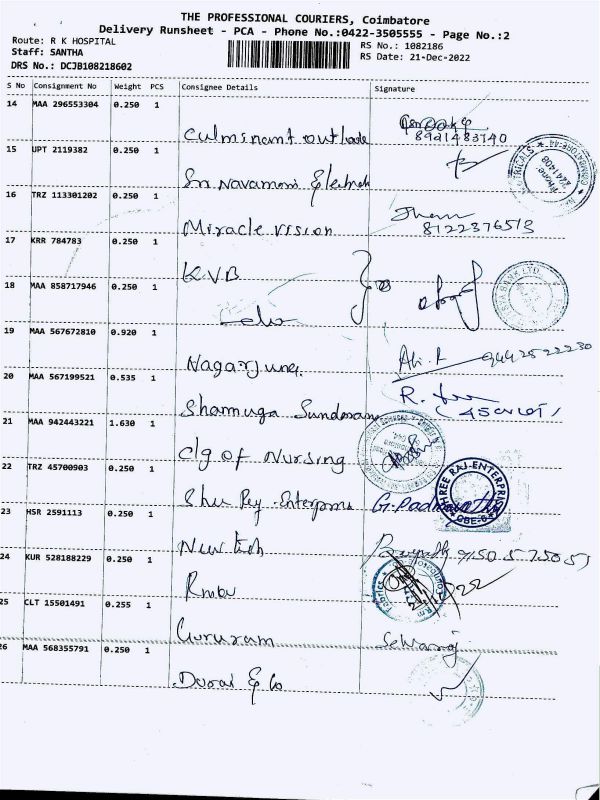 THE PROFESSIONAL COURIERS, Coimbatore
Delivery Runsheet - PCA - Phone No.:0422-3505555 - Page No.:2
Route: R K HOSPITAL
Staff: SANTHA
DRS No.: DCJB108218602
RS No.: 1082186
RS Date: 21-Dec-2022
S No Consignment No Weight PCS Consignee Details Signature
14 MAA 296553304 0.250 1
Culminant outlook
8921483740
15 UPT 2119382 0.250 1
Sri Navamoni Electricals
16 TRZ 113301202 0.250 1
Miracle vision
8122376513
17 KRR 784783 0.250 1
K.V.B
18 MAA 858717946 0.250 1
19 MAA 567672810 0.920 1
Nagarjuna
9442522230
20 MAA 567199521 0.535 1
Shamuga Sundaram
21 MAA 942443221 1.630 1
Clg of Nursing
22 TRZ 45700903 0.250 1
Shree Raj Enterprises
G. Padmavathi
SHREE RAJ ENTERPRISES
CBE-6
23 HSR 2591113 0.250 1
New tech
24 KUR 528188229 0.250 1
25 CLT 15501491 0.255 1
Gururam
Selvaraj
26 MAA 568355791 0.250 1
Durai & Co